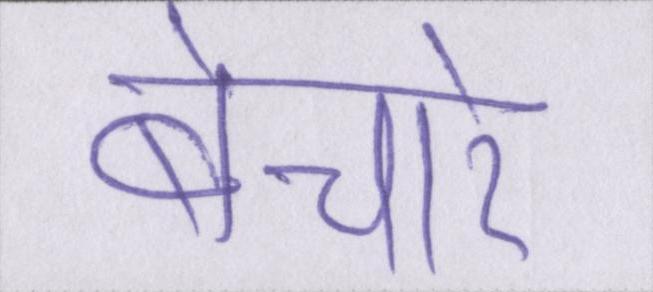 बेचारे